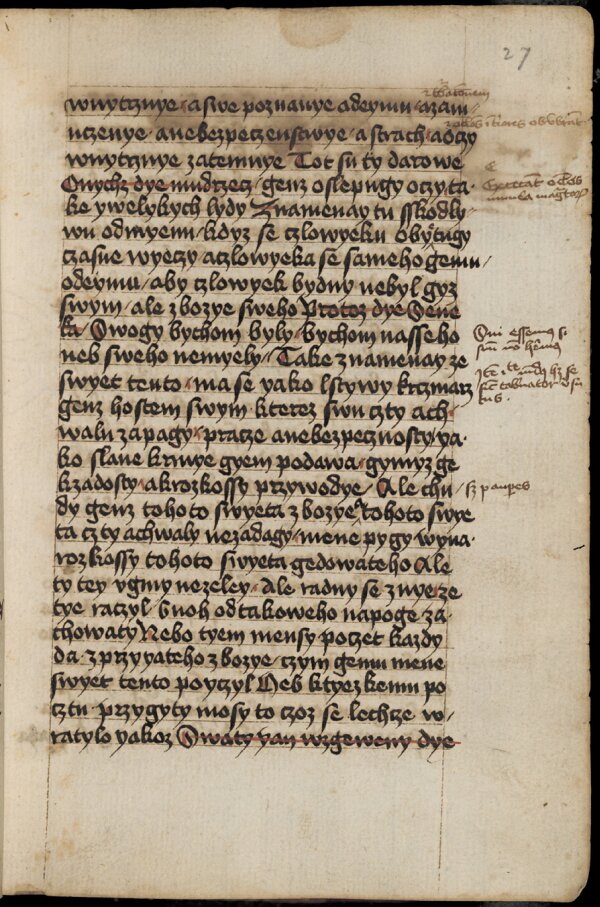 27
wnytrznye · a swe poznanye adeymu · a zam/
uczenye · a nebezpeczenstwye · a strach · a oczy
wnytrznye zatemnye Tot su ty darowe
Onychz dye mudrzecz · genz oslepugy oczy ta-
ke y welykych lydy Znamenay tu sskodly-
wu odmyenu / kdyz se czlowyeku obytugy
czasne wyeczy a czlowyeka se sameho gemu /
odeymu / aby czlowyek bydny nebyl gyz
swym / ale zbozye sweho Protoz dye Sene
ka / Swogy bychom byly / bychom nasseho
neb sweho nemyely / Take znamenay ze
swyet tento · ma se yako lstywy krzmarz
genz hostem swym · kterez swu czty a ch-
walu zapagy · pracze a nebezpecznosty / ya-
ko slane krmye gyem podawa · gymyz ge
k zadosty · a k rozkossy przywodye / Ale chu
dy genz tohoto swyeta zbozye tohoto swye
ta czty a chwaly nezadagy · mene pygy wyna ·
rozkossy tohoto swyeta gedowateho Ale
ty tey vgmy nezeley · Ale radny se z nye ze
tye raczyl buoh od takoweho napoge za-
chowaty Nebo tyem mensy poczet kazdy
da · z przyyateho zbozye / czym gemu mene
swyet tento poyczyl Neb k tyezkemu po
cztu · przygyty mosy to czoz se lechze w-
ratylo yakoz Swaty yan w zgeweny dye
Qui essemus si